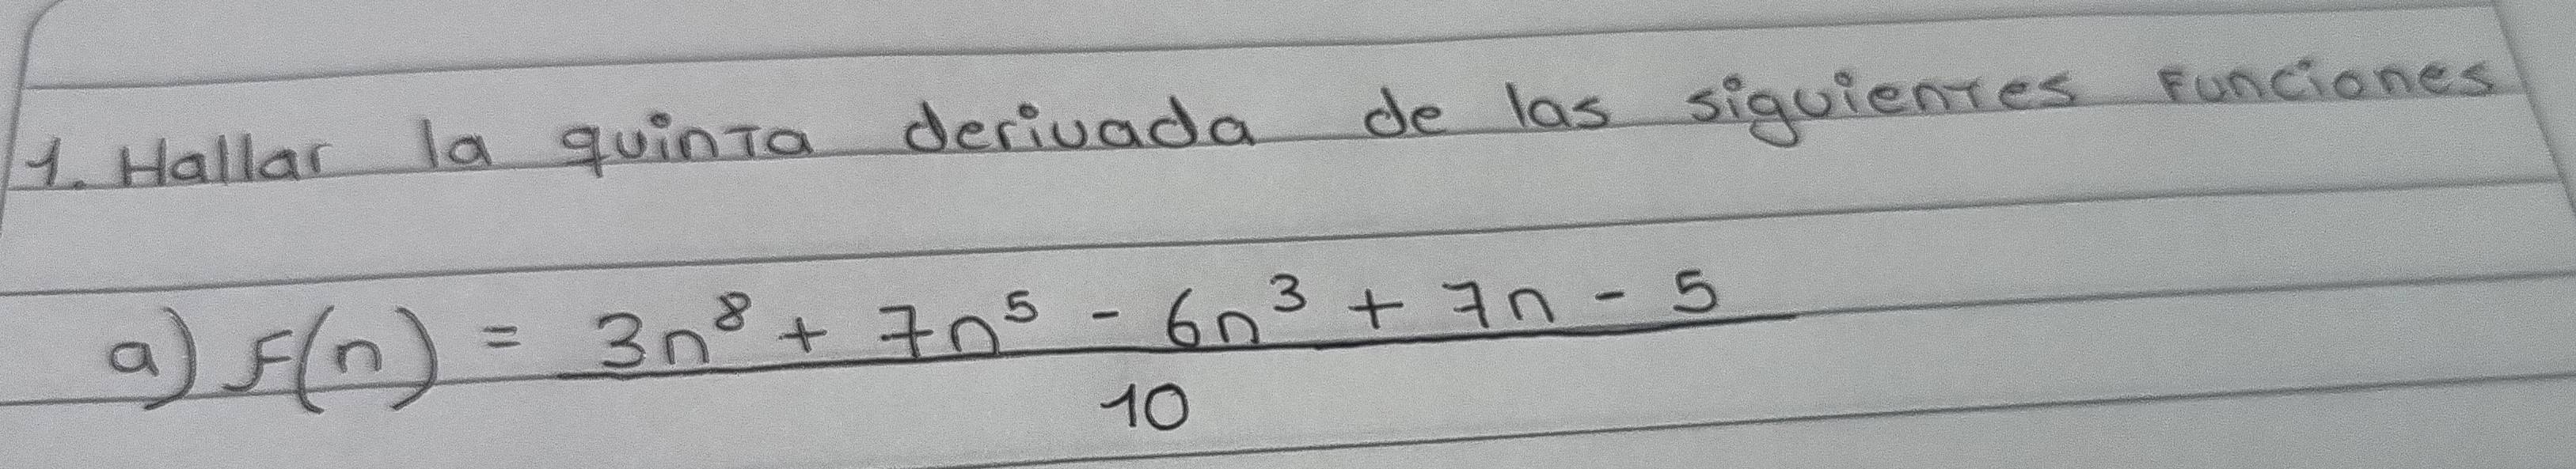 1. Hallar la quinta derivada de las siguientes funciones
a) f(n) = 3n⁸ + 7n⁵ - 6n³ + 7n - 5
10